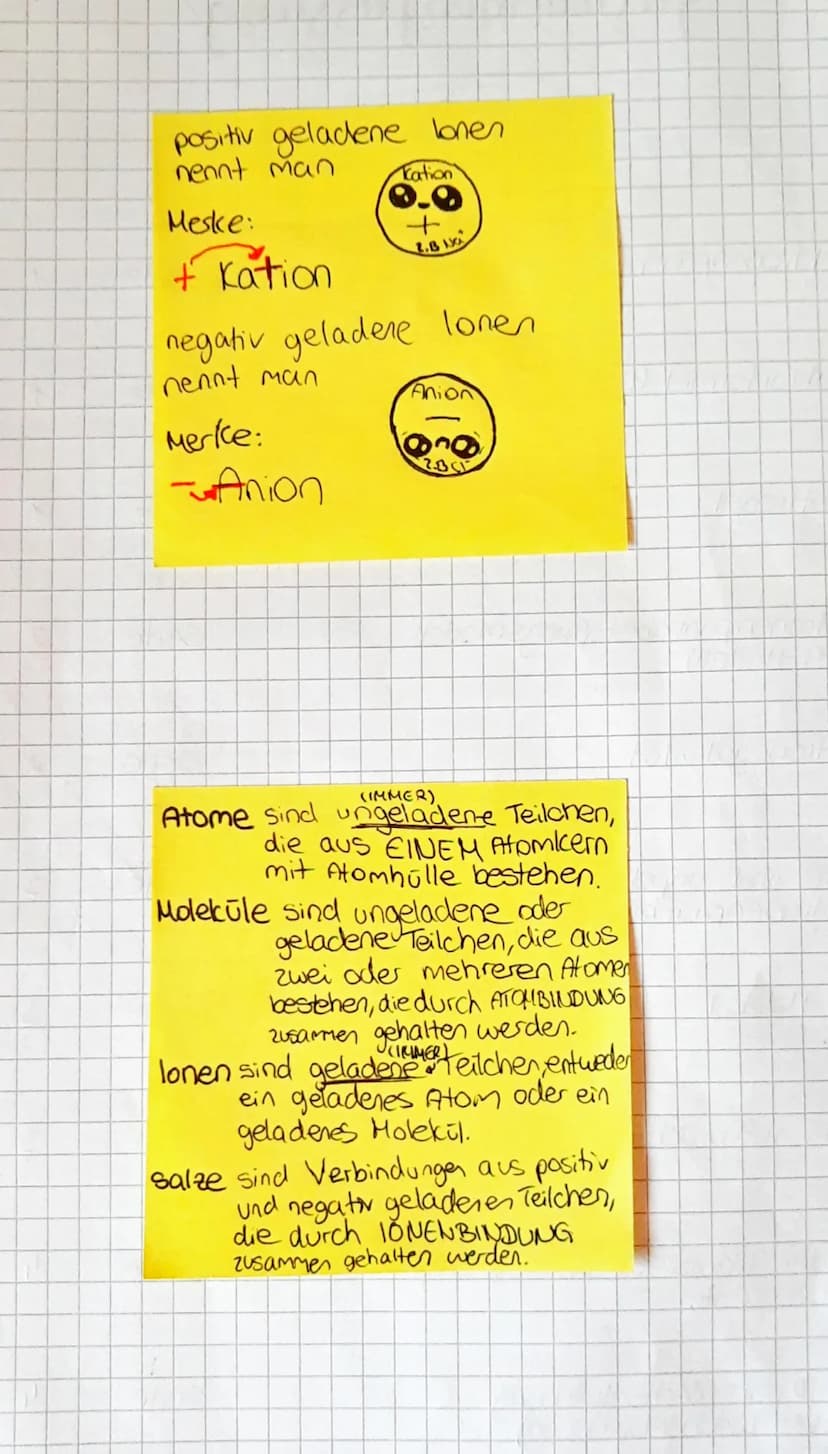 positiv geladene Ionen
nennt man
Kation
+
z.B Na⁺
Merke:
+ Kation
negativ geladene Ionen
nennt man
Anion
−
z.B Cl⁻
Merke:
- Anion
(IMMER)
Atome sind ungeladene Teilchen,
die aus EINEM Atomkern
mit Atomhülle bestehen.
Moleküle sind ungeladene oder
geladene Teilchen, die aus
zwei oder mehreren Atomen
bestehen, die durch ATOMBINDUNG
zusammen gehalten werden.
(IMMER)
Ionen sind geladene Teilchen, entweder
ein geladenes Atom oder ein
geladenes Molekül.
Salze sind Verbindungen aus positiv
und negativ geladenen Teilchen,
die durch IONENBINDUNG
zusammen gehalten werden.